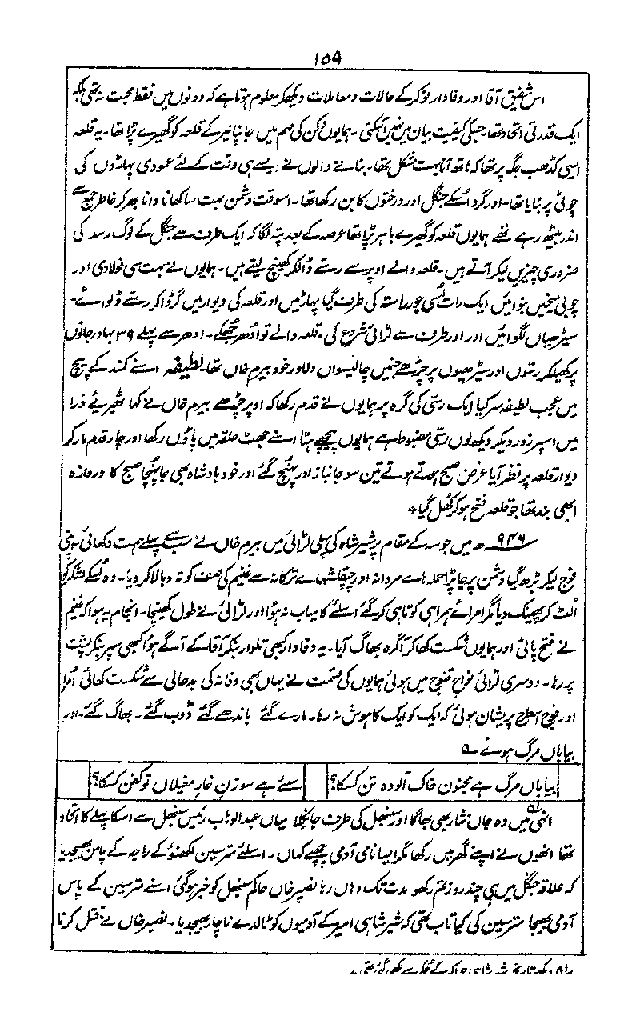 ۱۵۹
اس شفیق آقا اور وفادار نوکر کے حالات و معاملات دیکھکر معلوم ہوتا ہے کہ دونوں میں فقط محبت نہ تھی بلکہ
ایک قدرتی اتحاد تھا جسکی کیفیت بیان میں نہیں آسکتی۔ ہمایوں دکن کی مہم میں جانپانیر کے قلعہ کو گھیرے پڑا تھا۔ یہ قلعہ
ایسی کڈھب جگہ پر تھا کہ ہاتھ آنا بہت مشکل تھا۔ بنانے والوں نے ایسے ہی وقت کے لئے عمودی پہاڑوں کی
چوٹی پر بنایا تھا۔ اور گرد اسکے جنگل اور درختوں کا بن رکھا تھا۔ اسوقت دشمن بہت سا کھانا دانا بھر کر خاطر جمع سے
اندر بیٹھ رہے تھے ہمایوں قلعہ کو گھیرے باہر پڑا تھا عرصہ کے بعد پتہ لگا کہ ایک طرف سے جنگل کے لوگ رسد کی
ضروری چیزیں لیکر آتے ہیں۔ قلعہ والے اوپر سے رستے ڈالکر کھینچ لیتے ہیں۔ ہمایوں نے بہت سی فولادی اور
چوبی میخیں بنوائیں ایک رات اُسی چور راستہ کی طرف گیا پہاڑ میں اور قلعہ کی دیوار میں گڑوا کر رستے ڈلوائے۔
سیڑھیاں لگوائیں اور اور طرف سے لڑائی شروع کی۔ قلعہ والے تو اُدھر جھکے۔ ادھر سے پہلے ۳۹ بہادر جانوں
پر کھیلکر رستوں اور سیڑھیوں پر چڑھے جنمیں چالیسواں دلاور خود بیرم خاں تھا۔ لطیفہ اسنے کمند کے پیچ
میں عجب لطیفہ سر کیا ایک رسی کی گرہ پر ہمایوں نے قدم رکھا کہ اوپر چڑھے بیرم خاں نے کہا ٹھیریئے ذرا
میں اسپر زور دیکر دیکھ لوں رسی مضبوط ہے ہمایوں پیچھے ہٹا اسنے جھٹ حلقہ میں پاؤں رکھا اور چار قدم مار کر
دیوار قلعہ پر نظر آیا غرض صبح ہوتے ہوتے تین سو جانباز اور پہنچ گئے اور خود بادشاہ بھی جا پہنچا صبح کا دروازہ
ابھی بند تھا جو قلعہ فتح ہو کر کھل گیا
۹۴۶ھ میں چوسہ کے مقام پر شیر شاہ کی پہلی لڑائی میں بیرم خاں نے سب سے پہلے ہمت دکھائی اپنی
فوج لیکر بڑھ گیا دشمن پر جا پڑا حملہ ہائے مردانہ اور چپقلشہائے ترکانہ سے غنیم کی صف کو تہ و بالا کر دیا۔ اور اسکے لشکر کو
الٹ کر پھینک دیا مگر امرائے ہمراہی کوتاہی کر گئے اسلئے کامیاب نہ ہوا اور لڑائی نے طول کھینچا۔ انجام یہ ہوا کہ غنیم
نے فتح پائی اور ہمایوں شکست کھا کر آگرہ بھاگ آیا۔ یہ وفادار کبھی تلوار بنکر آقا کے آگے ہوا کبھی سپر بنکر پشت
پر رہا۔ دوسری لڑائی نواح قنوج میں ہوئی ہمایوں کی قسمت نے یہاں بھی وفا نہ کی بدحالی سے شکست کھائی امرا
اور فوج اسطرح پریشان ہوئی کہ ایک کو ایک کا ہوش نہ رہا۔ مارے گئے باندھے گئے ڈوب گئے۔ بھاگ گئے۔ اور
بیاباں مرگ ہوئے ؎
بیاباں مرگ ہے مجنون خاک آلودہ تن کسکا؟ سئے ہے سوزن خار مغیلاں تو کفن کسکا؟
انہی میں وہ جاں نثار بھی بھاگا اور سنبھل کی طرف جا نکلا میاں عبدالوہاب رئیس سنبھل سے اسکا پہلے کا اتحاد
تھا انھوں نے اپنے گھر میں رکھا مگر ایسا نامی آدمی چھپے کہاں۔ اسلئے مترسین لکھنؤ کے راجہ کے پاس بھیجدیا
کہ علاقہ جنگل میں ہی چند روز تم رکھو مدت تک وہاں رہا نصیر خاں حاکم سنبھل کو خبر ہوگئی اسنے مترسین کے پاس
آدمی بھیجا مترسین کی کیا تاب تھی کہ شیر شاہی امیر کے آدمیوں کو ٹالدے ناچار بھیجدیا۔ نصیر خاں نے قتل کرنا